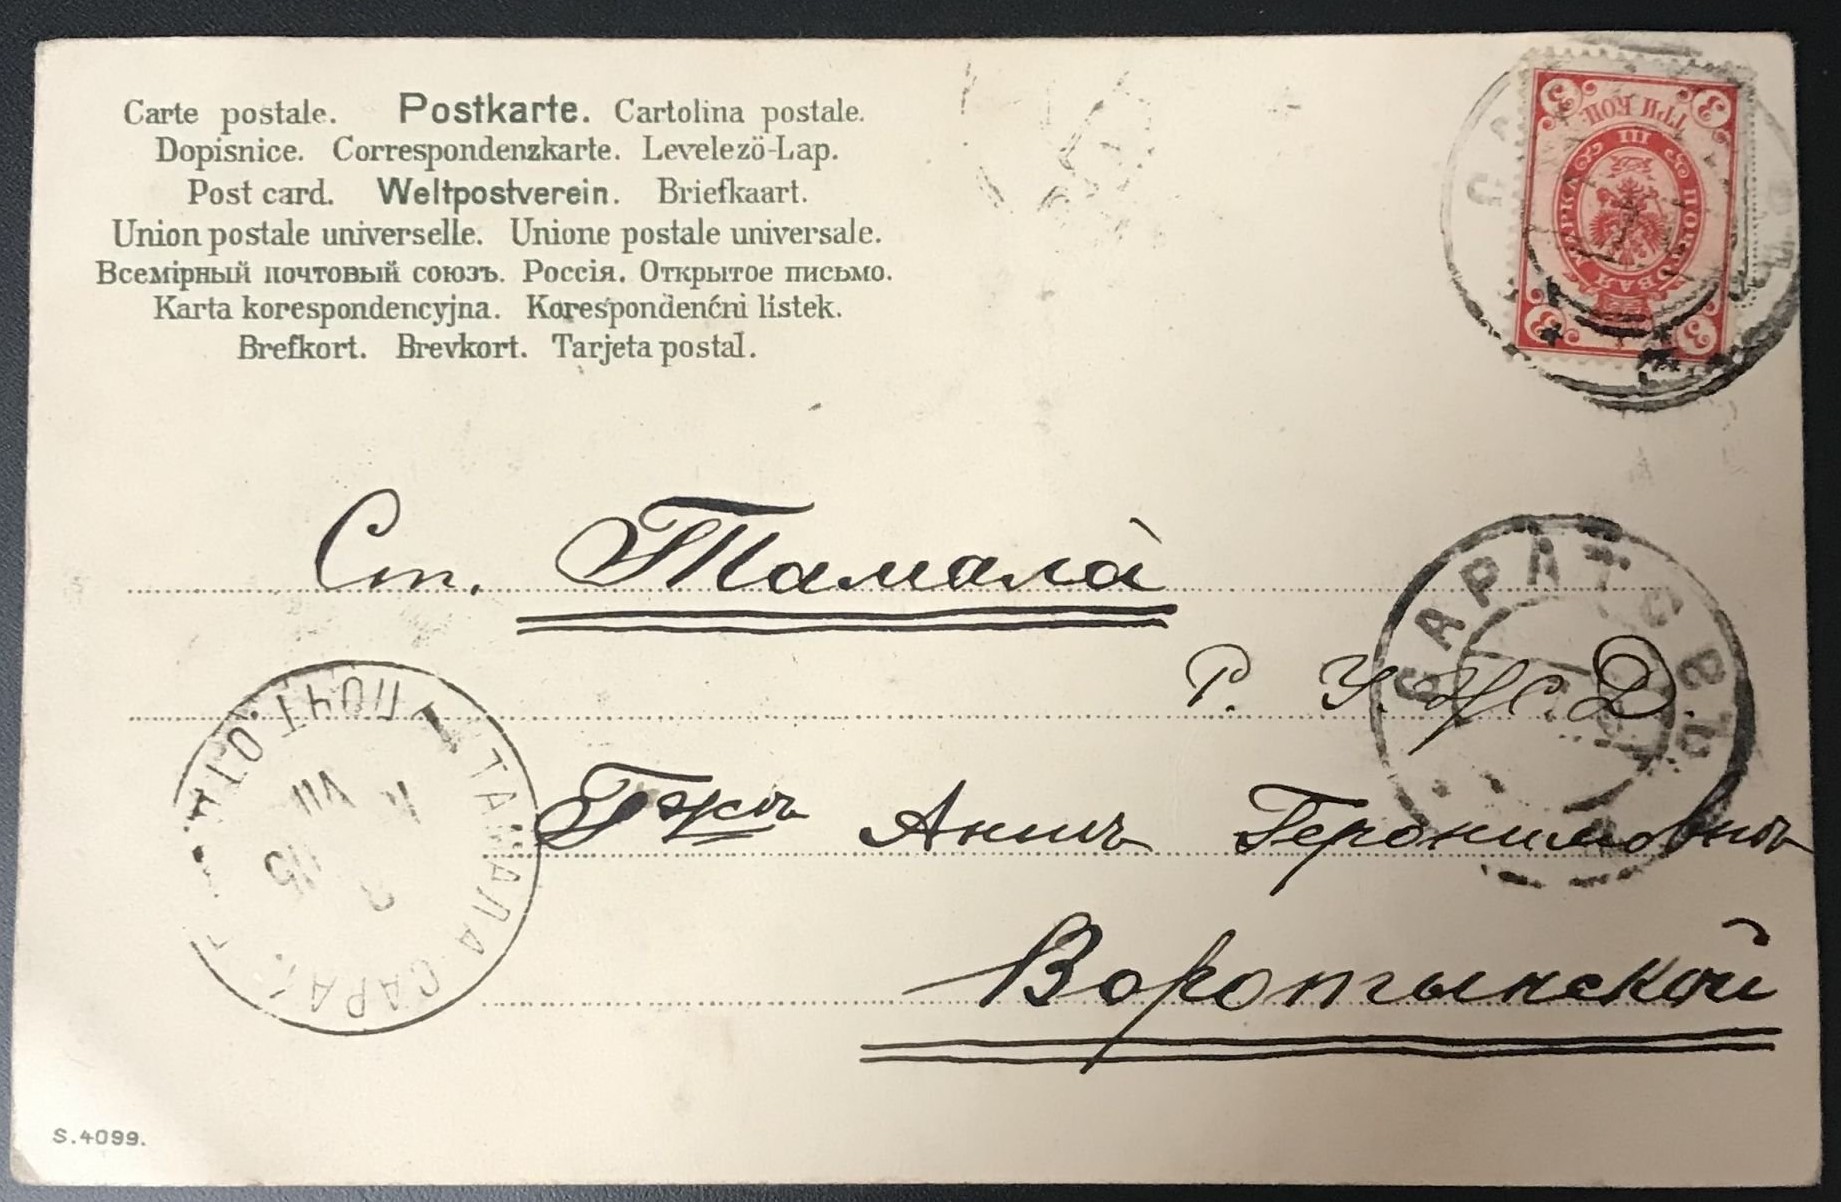 Carte postale. Postkarte. Cartolina postale.
Dopisnice. Correspondenzkarte. Levelezö-Lap.
Post card. Weltpostverein. Briefkaart.
Union postale universelle. Unione postale universale.
Всемірный почтовый союзъ. Россія. Открытое письмо.
Karta korespondencyjna. Korespondenčni listek.
Brefkort. Brevkort. Tarjeta postal.
3 ТРИ КОП. 3
ПОЧТОВАЯ МАРКА
3 3
Ст. Тамала
САРАТОВЪ
Р. У. Ж. Д.
ПОЧТ. ОТД.
ТАМАЛА САРАТ
VII
Гжѣ Аннѣ Геронимовнѣ
Воротынской
S.4099.